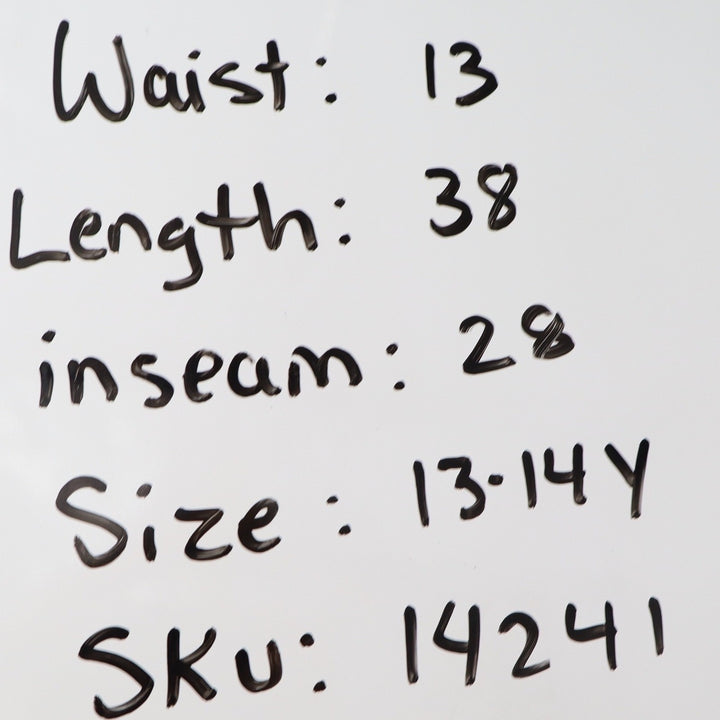 Waist: 13
Length: 38
inseam: 28
Size: 13-14Y
SKU: 14241